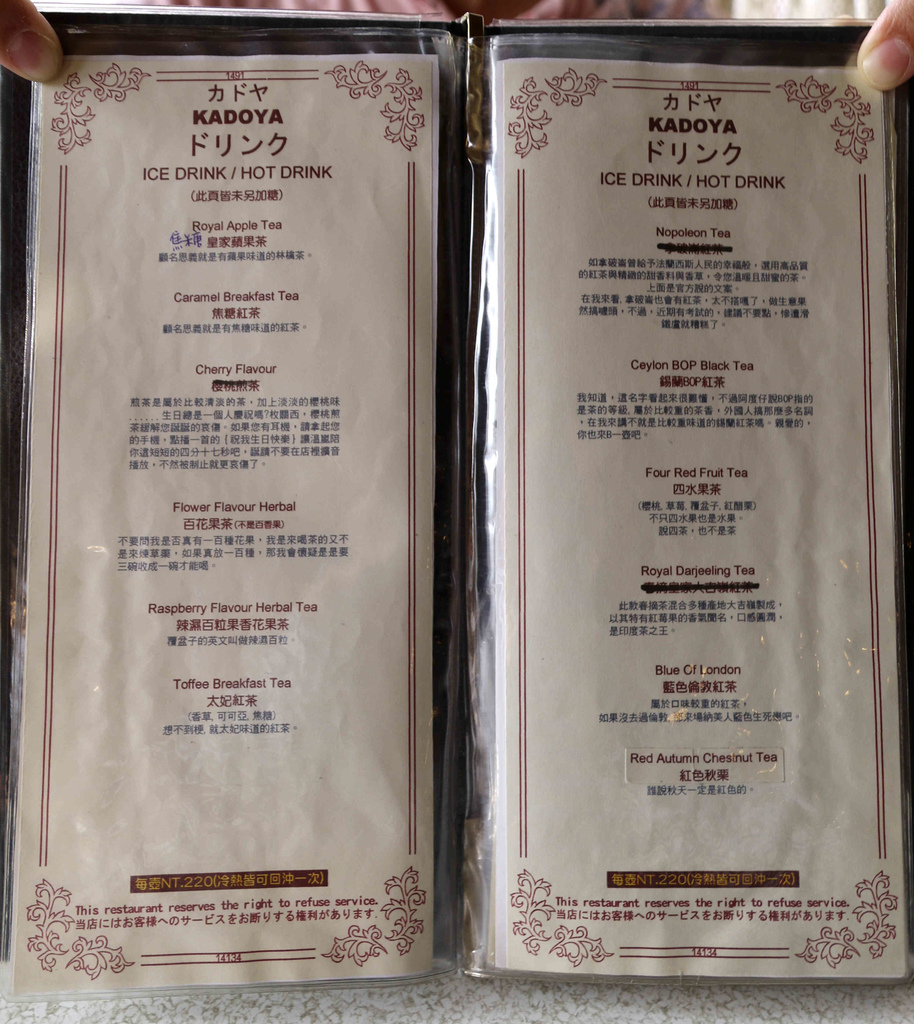 1491
カドヤ
KADOYA
ドリンク
ICE DRINK / HOT DRINK
(此頁皆未另加糖)
Royal Apple Tea
焦糖 皇家蘋果茶
顧名思義就是有蘋果味道的林檎茶。
Caramel Breakfast Tea
焦糖紅茶
顧名思義就是有焦糖味道的紅茶。
Cherry Flavour
櫻桃煎茶
煎茶是屬於比較清淡的茶，加上淡淡的櫻桃味
......生日總是一個人慶祝嗎?枚頤西，櫻桃煎
茶緩解您誕誕的哀傷。如果您有耳機，請拿起您
的手機，點播一首的{祝我生日快樂}讓溫嵐陪
你這短短的四分十七秒吧，誕請不要在店裡擴音
播放，不然被制止就更哀傷了。
Flower Flavour Herbal
百花果茶(不是百香果)
不要問我是否真有一百種花果，我是來喝茶的又不
是來煉草藥，如果真放一百種，那我會懷疑是是要
三碗收成一碗才能喝。
Raspberry Flavour Herbal Tea
辣濕百粒果香花果茶
覆盆子的英文叫做辣濕百粒。
Toffee Breakfast Tea
太妃紅茶
(香草, 可可亞, 焦糖)
想不到梗, 就太妃味道的紅茶。
每壺NT.220(冷熱皆可回沖一次)
This restaurant reserves the right to refuse service.
当店にはお客様へのサービスをお断りする権利があります.
14134
1491
カドヤ
KADOYA
ドリンク
ICE DRINK / HOT DRINK
(此頁皆未另加糖)
Nopoleon Tea
拿破崙紅茶
如拿破崙曾給予法蘭西斯人民的幸福般，選用高品質
的紅茶與精緻的甜香料與香草，令您溫暖且甜蜜的茶。
上面是官方說的文案。
在我來看, 拿破崙也會有紅茶，太不搭嘎了，做生意果
然搞噱頭，不過，近期有考試的，建議不要點，慘遭滑
鐵盧就糟糕了。
Ceylon BOP Black Tea
錫蘭BOP紅茶
我知道，這名字看起來很難懂，不過阿度仔說BOP指的
是茶的等級, 屬於比較重的茶香，外國人搞那麼多名詞
，在我來講不就是比較重味道的錫蘭紅茶嗎。親愛的，
你也來B一壺吧。
Four Red Fruit Tea
四水果茶
(櫻桃, 草莓, 覆盆子, 紅醋栗)
不只四水果也是水果。
說四茶，也不是茶
Royal Darjeeling Tea
春摘皇家大吉嶺紅茶
此款春摘茶混合多種產地大吉嶺製成，
以其特有紅莓果的香氣聞名，口感圓潤，
是印度茶之王。
Blue Of London
藍色倫敦紅茶
屬於口味較重的紅茶，
如果沒去過倫敦, 那來場納美人藍色生死戀吧。
Red Autumn Chestnut Tea
紅色秋栗
誰說秋天一定是紅色的。
每壺NT.220(冷熱皆可回沖一次)
This restaurant reserves the right to refuse service.
当店にはお客様へのサービスをお断りする権利があります.
14134